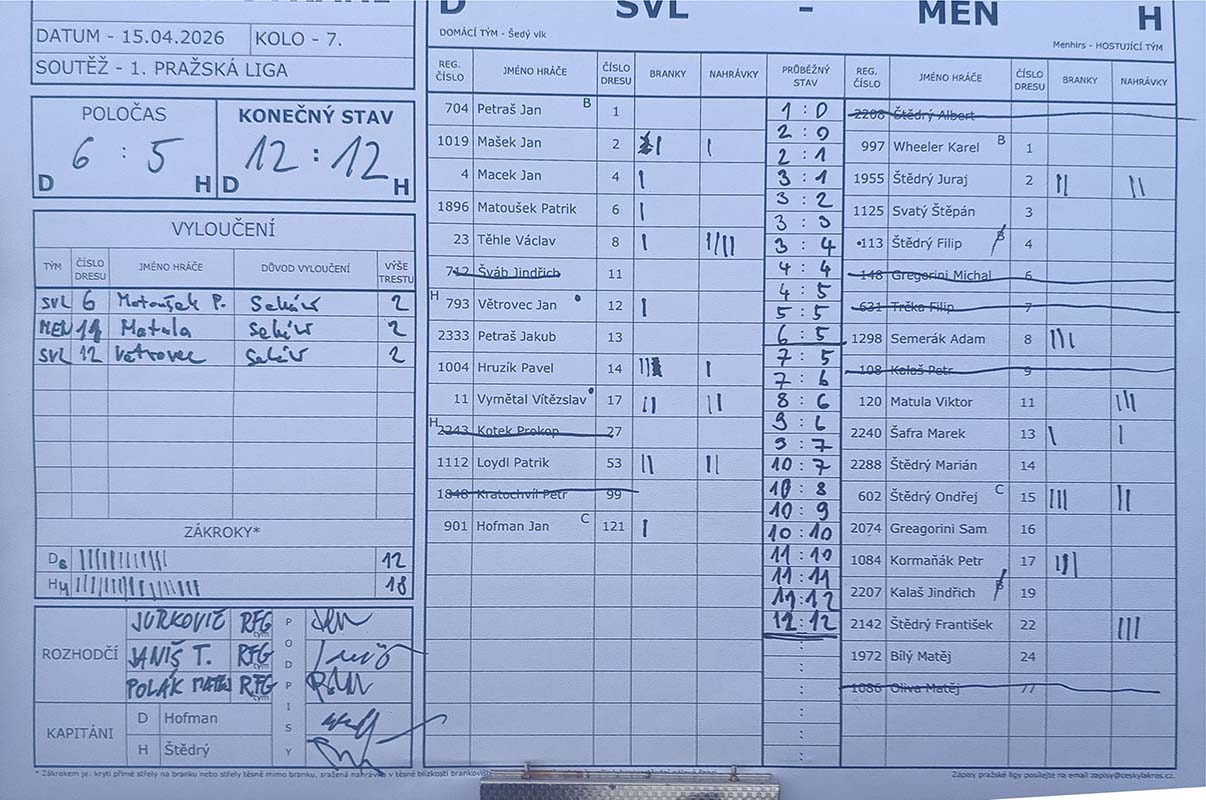 D SVL - MEN H
DOMÁCÍ TÝM - Šedý vlk
Menhirs - HOSTUJÍCÍ TÝM
DATUM - 15.04.2026 KOLO - 7.
SOUTĚŽ - 1. PRAŽSKÁ LIGA
POLOČAS KONEČNÝ STAV
6 : 5 12 : 12
D H D H
VYLOUČENÍ
TÝM ČÍSLO DRESU JMÉNO HRÁČE DŮVOD VYLOUČENÍ VÝŠE TRESTU
SVL 6 Matoušek P. Sekání 2
MEN 11 Matula Sekání 2
SVL 12 Větrovec Sekání 2
ZÁKROKY*
D 12
H 18
ROZHODČÍ
JURKOVIČ RFG tým
JANIŠ T. RFG tým
POLÁK MATĚJ RFG tým
PODPISY
KAPITÁNI
D Hofman
H Štědrý
REG. ČÍSLO JMÉNO HRÁČE ČÍSLO DRESU BRANKY NAHRÁVKY
704 Petraš Jan B 1
1019 Mašek Jan 2 || |
4 Macek Jan 4 |
1896 Matoušek Patrik 6 |
23 Těhle Václav 8 | ||||
712 Šváb Jindřich 11
H 793 Větrovec Jan 12 |
2333 Petraš Jakub 13
1004 Hruzík Pavel 14 || |
11 Vymětal Vítězslav 17 || ||
H 2243 Kotek Prokop 27
1112 Loydl Patrik 53 || ||
1848 Kratochvíl Petr 99
901 Hofman Jan C 121 |
PRŮBĚŽNÝ STAV
1 : 0
2 : 0
2 : 1
3 : 1
3 : 2
3 : 3
3 : 4
4 : 4
4 : 5
5 : 5
6 : 5
7 : 5
7 : 6
8 : 6
9 : 6
9 : 7
10 : 7
10 : 8
10 : 9
10 : 10
11 : 10
11 : 11
11 : 12
12 : 12
REG. ČÍSLO JMÉNO HRÁČE ČÍSLO DRESU BRANKY NAHRÁVKY
2208 Štědrý Albert
997 Wheeler Karel B 1
1955 Štědrý Juraj 2 || ||
1125 Svatý Štěpán 3
113 Štědrý Filip B 4
148 Gregorini Michal 6
631 Trčka Filip 7
1298 Semerák Adam 8 |||
108 Kalaš Petr 9
120 Matula Viktor 11 |||
2240 Šafra Marek 13 | |
2288 Štědrý Marián 14
602 Štědrý Ondřej C 15 ||| ||
2074 Greagorini Sam 16
1084 Kormaňák Petr 17 |||
2207 Kalaš Jindřich B 19
2142 Štědrý František 22 |||
1972 Bílý Matěj 24
1086 Oliva Matěj 77
* Zákrokem je: krytí přímé střely na branku nebo střely těsně mimo branku, sražená nahrávka v těsné blízkosti brankoviště
Zápisy pražské ligy posílejte na email zapisy@ceskylakros.cz.